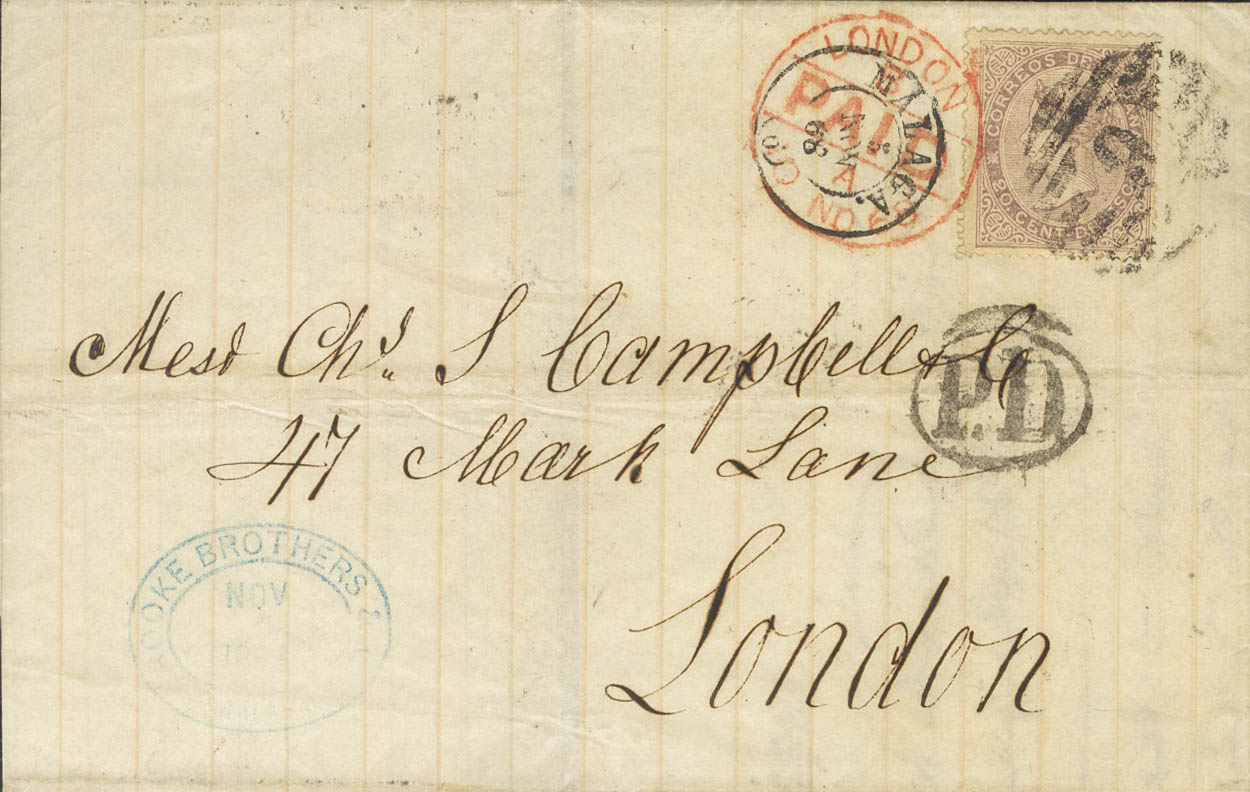 LONDON
PAID
NO 68
MALAGA.
5
NOV
68
CORREOS DE
20 CENT. DE ESC
P.D
Mess Chs S Campbell & Co
47 Mark Lane
London
COOKE BROTHERS &
NOV